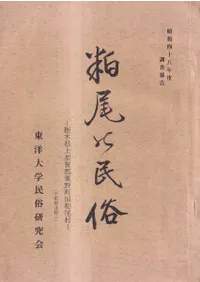 昭和四十八年度
調査報告
粕尾の民俗
―栃木県上都賀郡粟野町旧粕尾村―
東洋大学民俗研究会